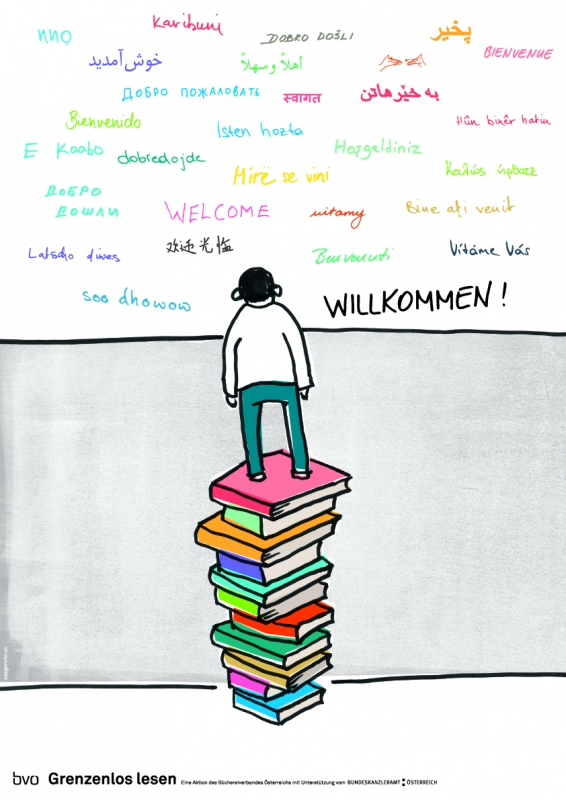 Karibuni
DOBRO DOŠLI
پخیر
BIENVENUE
خوش آمدید
أهلاً و سهلاً
ДОБРО ПОЖАЛОВАТЬ
स्वागत
به خێرهاتن
Bienvenido
Isten hozta
Hûn bixêr hatin
E Kaabo
dobredojde
Hoşgeldiniz
Mirë se vini
Καλώς ήρθατε
ДОБРО
ДОШЛИ
WELCOME
witamy
Bine ați venit
Latscho diwes
欢迎光临
Benvenuti
Vítáme Vás
soo dhowow
WILLKOMMEN!
bvö Grenzenlos lesen Eine Aktion des Büchereiverbandes Österreichs mit Unterstützung vom BUNDESKANZLERAMT ÖSTERREICH